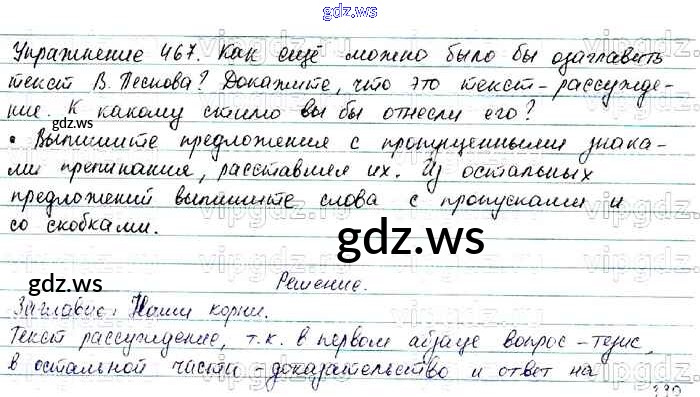 gdz.ws
Упражнение 467. Как ещё можно было бы озаглавить
текст В. Пескова? Докажите, что это текст-рассужде-
ние. К какому стилю вы бы отнесли его?
gdz.ws
• Выпишите предложения с пропущенными знака-
ми препинания, расставляя их. Из остальных
предложений выпишите слова с пропусками и
со скобками.
gdz.ws
gdz.ws
Решение.
Заглавие: Наши корни.
Текст рассуждение, т.к. в первом абзаце вопрос-тезис,
в остальной части-доказательство и ответ на
gdz.ws
339